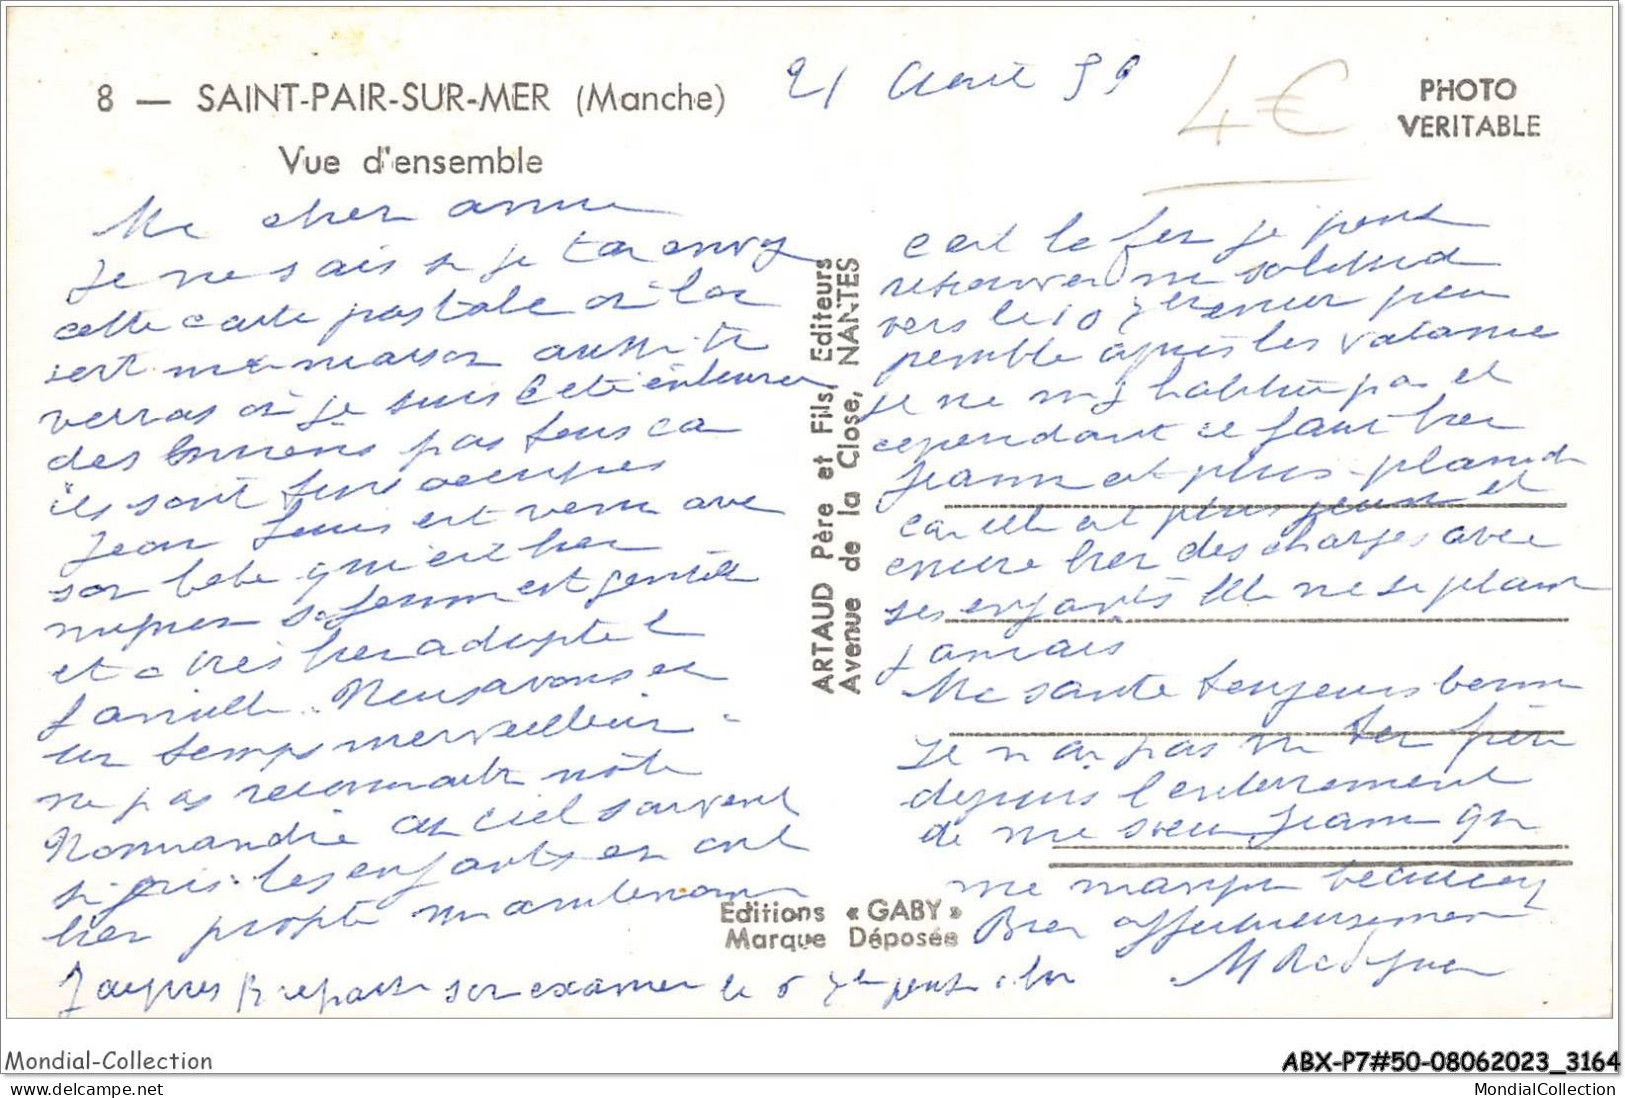 8 — SAINT-PAIR-SUR-MER (Manche)
Vue d'ensemble
21 Août 59
4€
PHOTO
VERITABLE
Ma cher
Je ne sais si je t'ai envoy
cette carte postale où la
sert ma maison aussi tu
verras où je suis
des pas tous ca
ils sont occupés
Jean Louis est venu avec
son bébé qui est bien
mignon sa femme est gentille
et a très bien adopté l
famille. Nous avons eu
un temps merveilleux
ne pas reconnaitre notre
Normandie au ciel souvent
si gris. les enfants en ont
bien profité maintenant
Jacques repasse son examen le 6 7bre
ARTAUD Père et Fils, Editeurs
Avenue de la Close, NANTES
Editions « GABY »
Marque Déposée
je
retrouver ma solitude
vers le 10 7bre un peu
penible après les vacances
je ne m'y habitue pas et
cependant il faut bien
Jeanne est plus
car elle est plus jeune et
encore bien des charges avec
ses enfants Elle ne se plaint
jamais
Ma santé toujours bonne
Je n'ai pas vu ton frère
depuis l'enterrement
de ma soeur Jeanne qui
me manque beaucoup
Bien affectueusement
M
Mondial-Collection
ABX-P7#50-08062023_3164
www.delcampe.net
MondialCollection